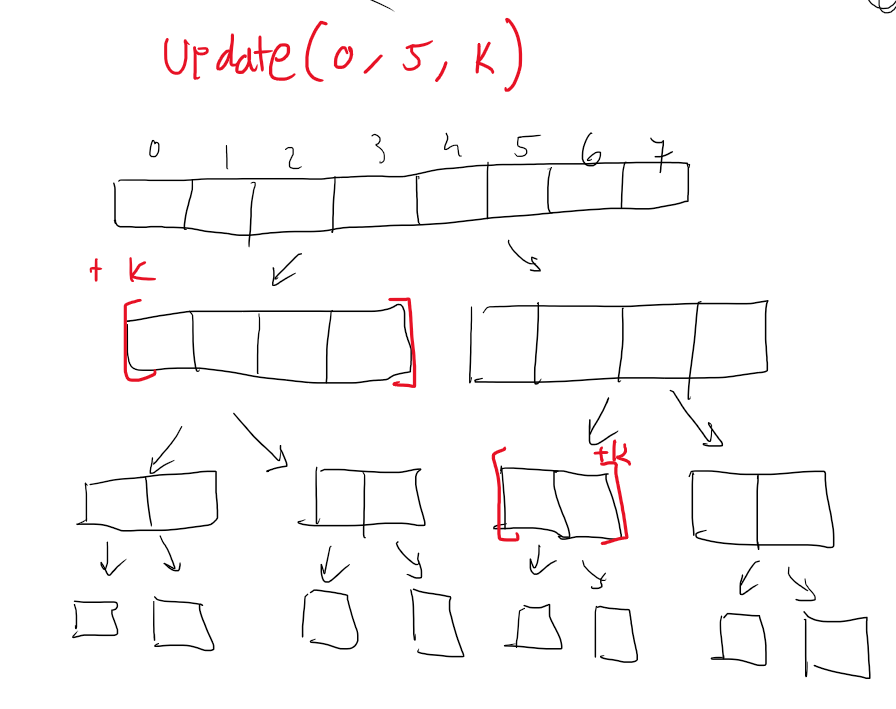 Update(0, 5, K)
0 1 2 3 4 5 6 7
+ K
+K